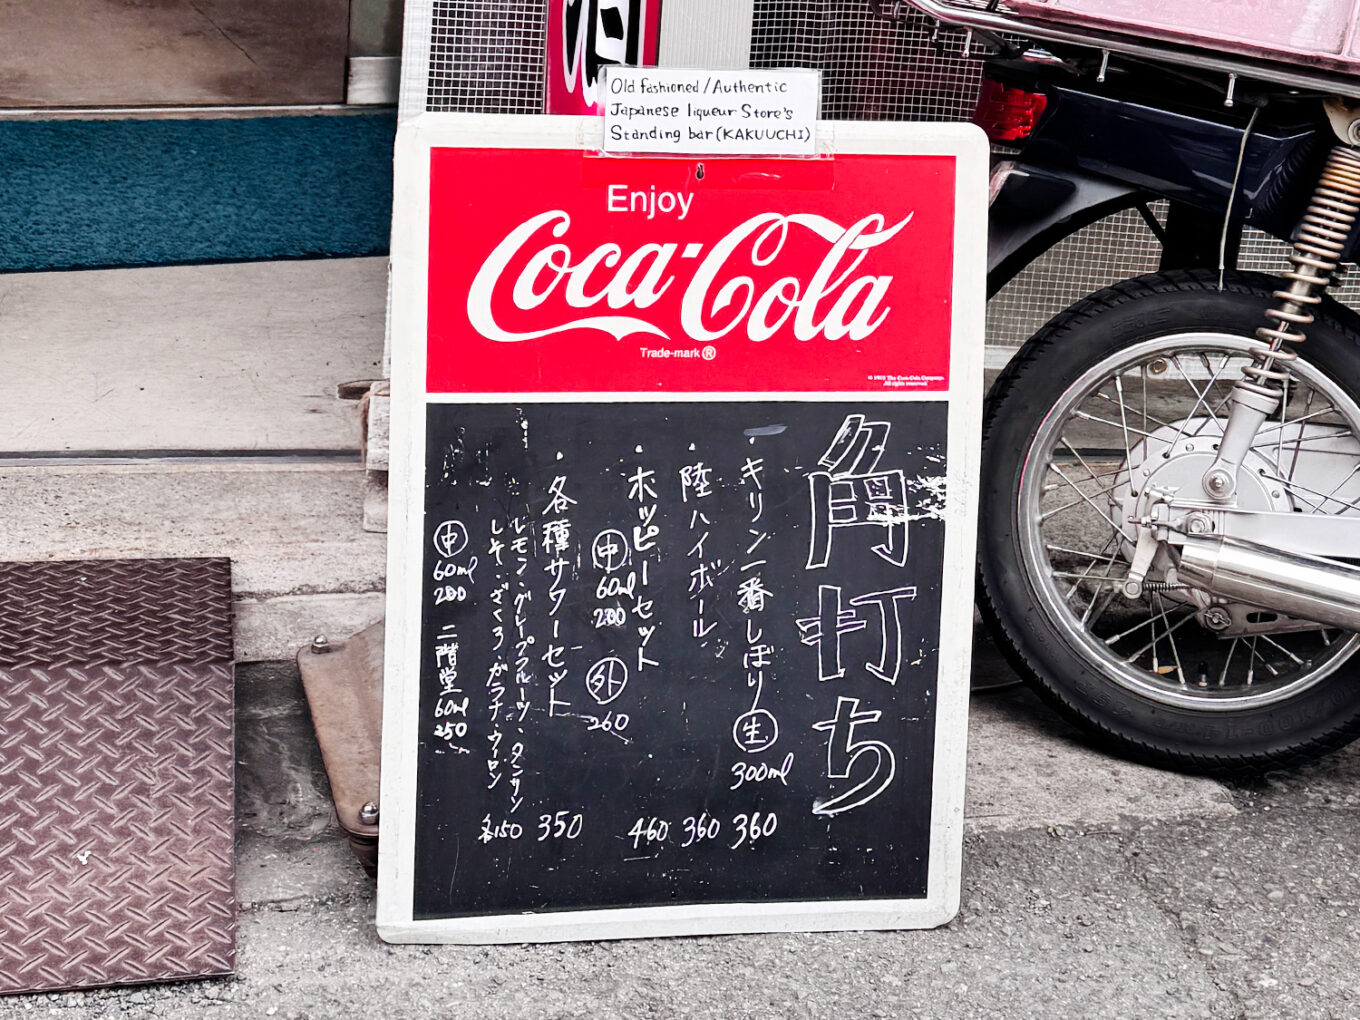 Old fashioned/Authentic
Japanese liqueur Store's
Standing bar(KAKUUCHI)
Enjoy
Coca-Cola
Trade-mark®
角打ち
・キリン一番しぼり 生 300ml 360
・陸ハイボール 360
・ホッピーセット 460
中 60ml 200
外 260
・各種サワーセット 350
レモン・グレープフルーツ・タンサン
しそ・ざくろ ガラナ・ウーロン 各150
中 60ml 200
二階堂 60ml 250